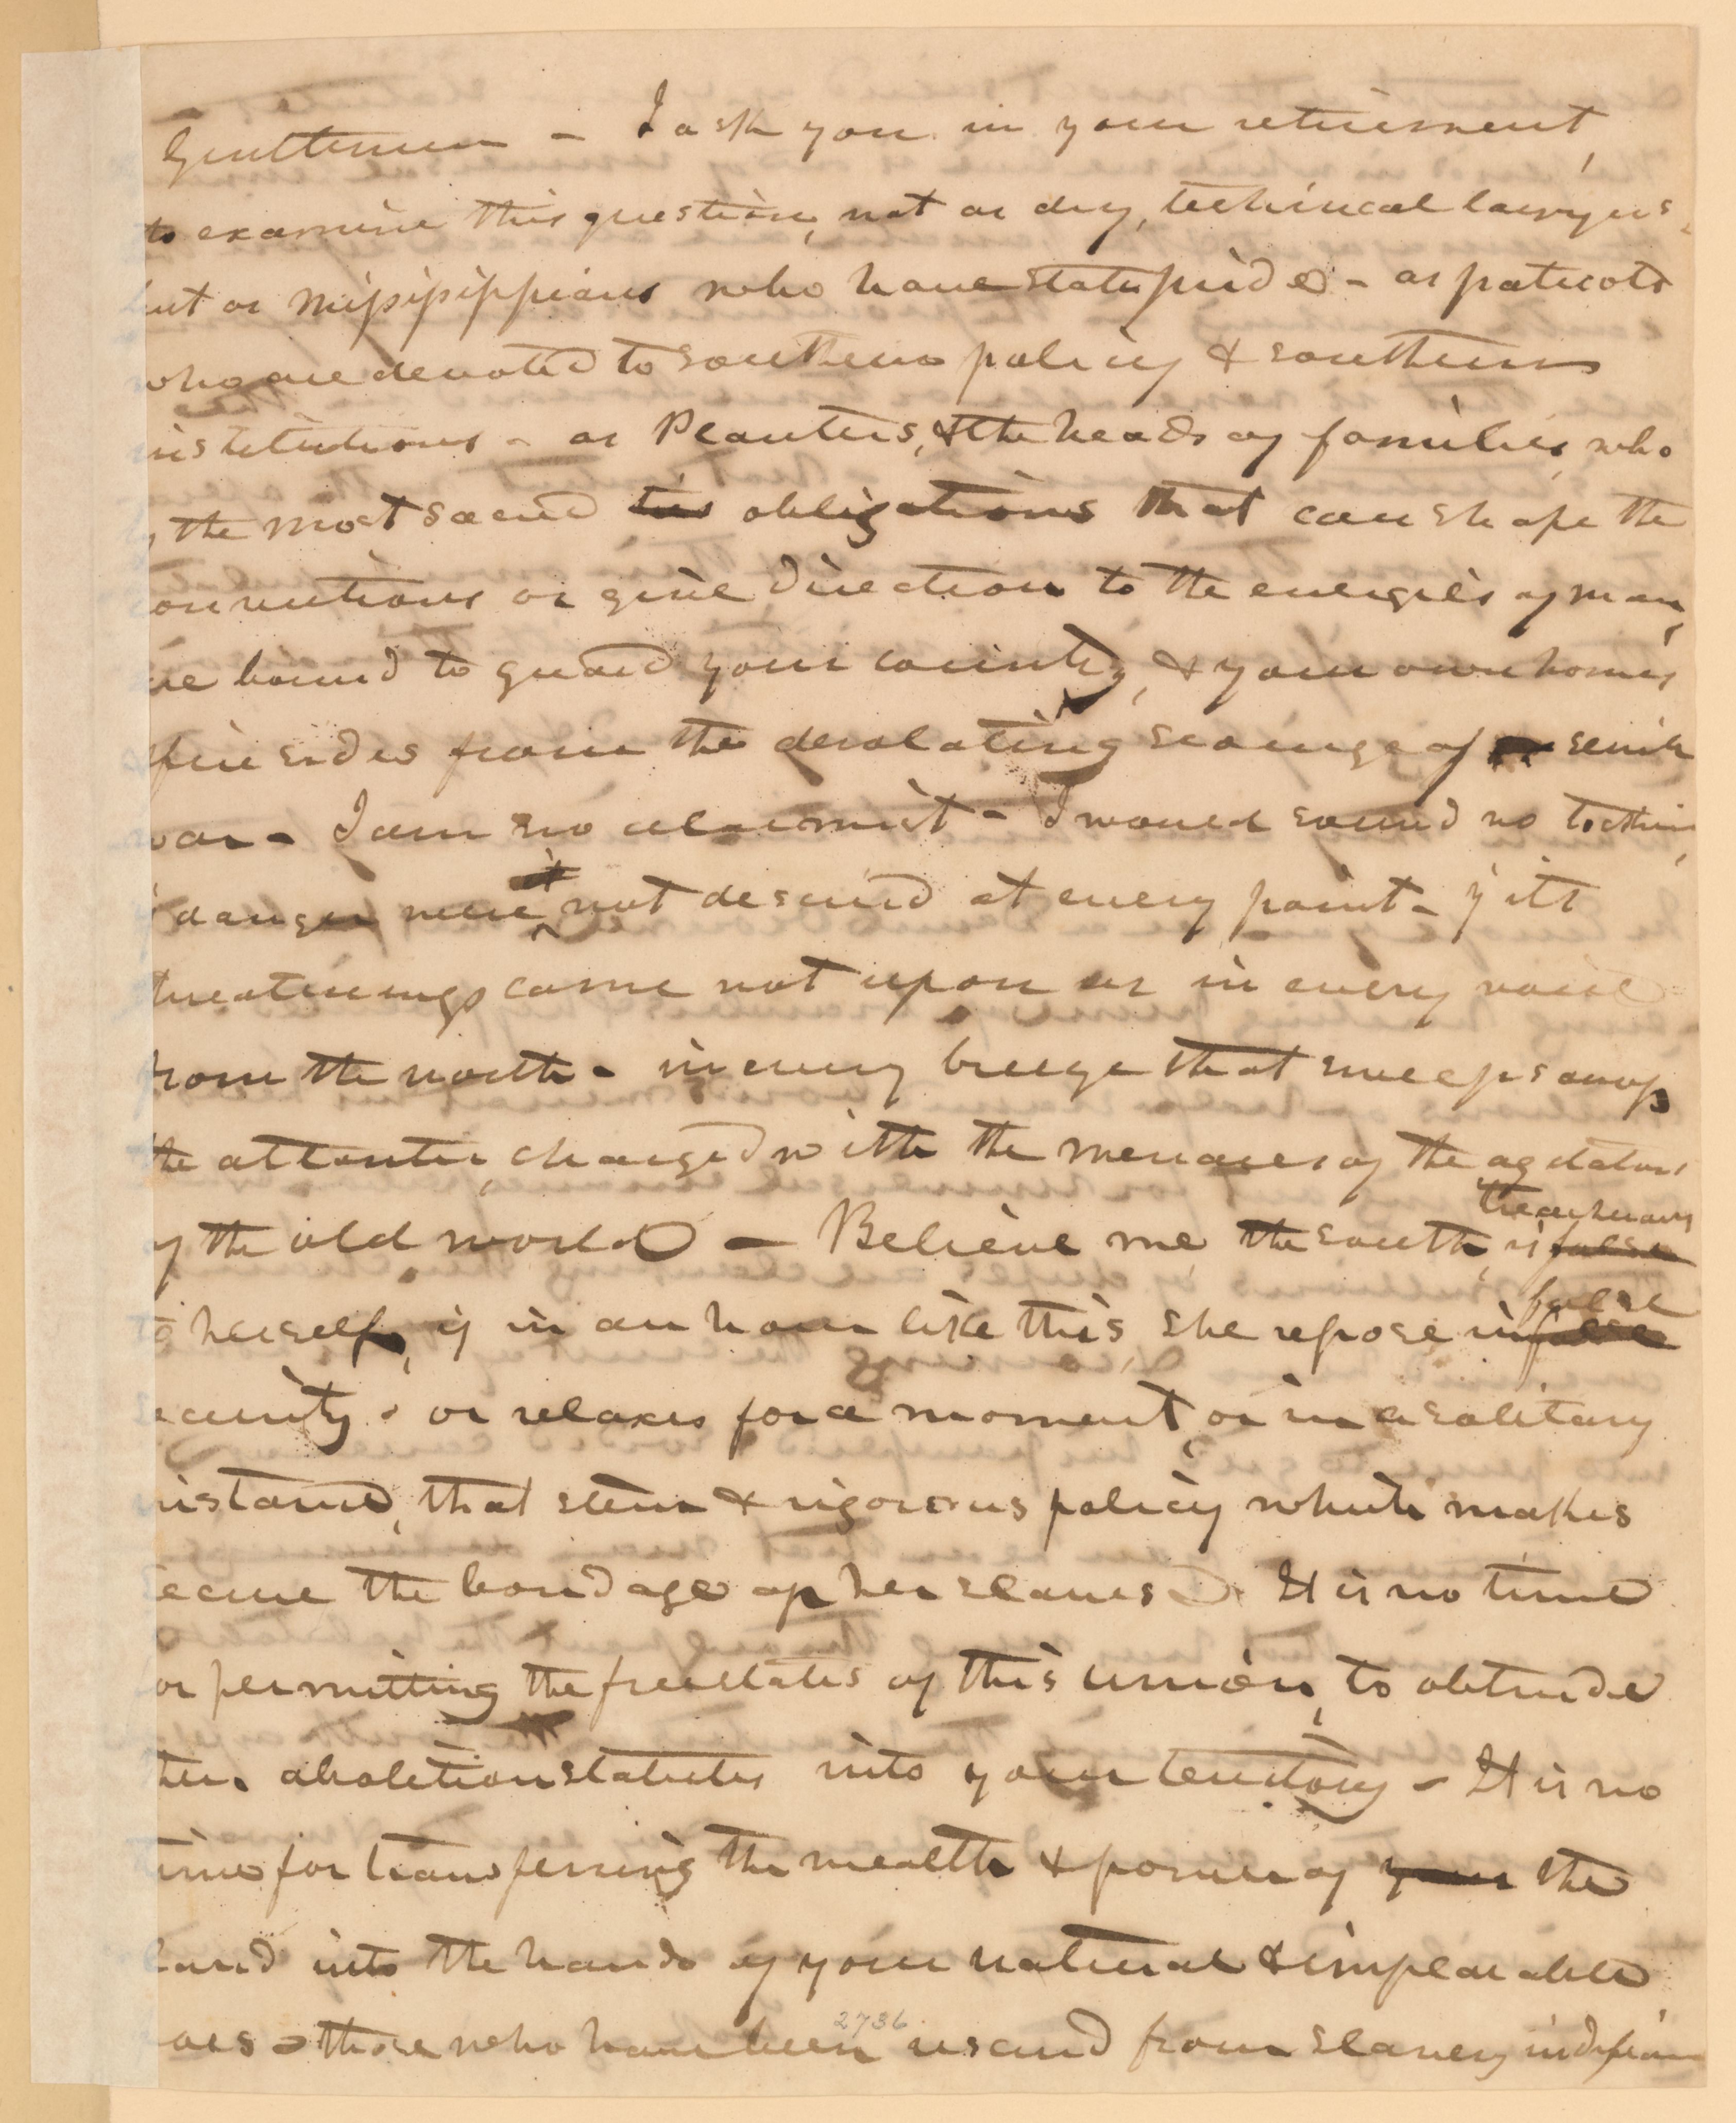 Gentlemen - I ask you in your retirement,
to examine this question, not as dry, technical lawyers,
but as Missipippians who have state pride - as patriots
who are devoted to southern policy & southern
institutions - as Planters, & the heads of families, who
the most sacred ties obligations that can shape the
onvictions or give direction to the energies of man,
are bound to guard your country, & your own homes
firesides from the desolating scourge of servile
war - I am no alarmist - I would sound no tocsin,
danger were it not descried at every point - if its
threatenings came not upon us in every voice
from the north - in every breeze that sweeps across
the atlantic, charged with the menaces of the agitators
of the old world - Believe me the south, is false
treacherous
to herself, if in an hour like this, she repose in false
false
ecurity - or relaxes for a moment, or in a solitary
instance, that stern & rigorous policy which makes
ecure the bondage of her slaves. It is no time
or permitting the free states of this union, to obtrude
their abolition statutes into your territory - It is no
time for transferring the wealth & power of your the
land into the hands of your natural & implacable
oes - those who have been rescued from slavery
2736